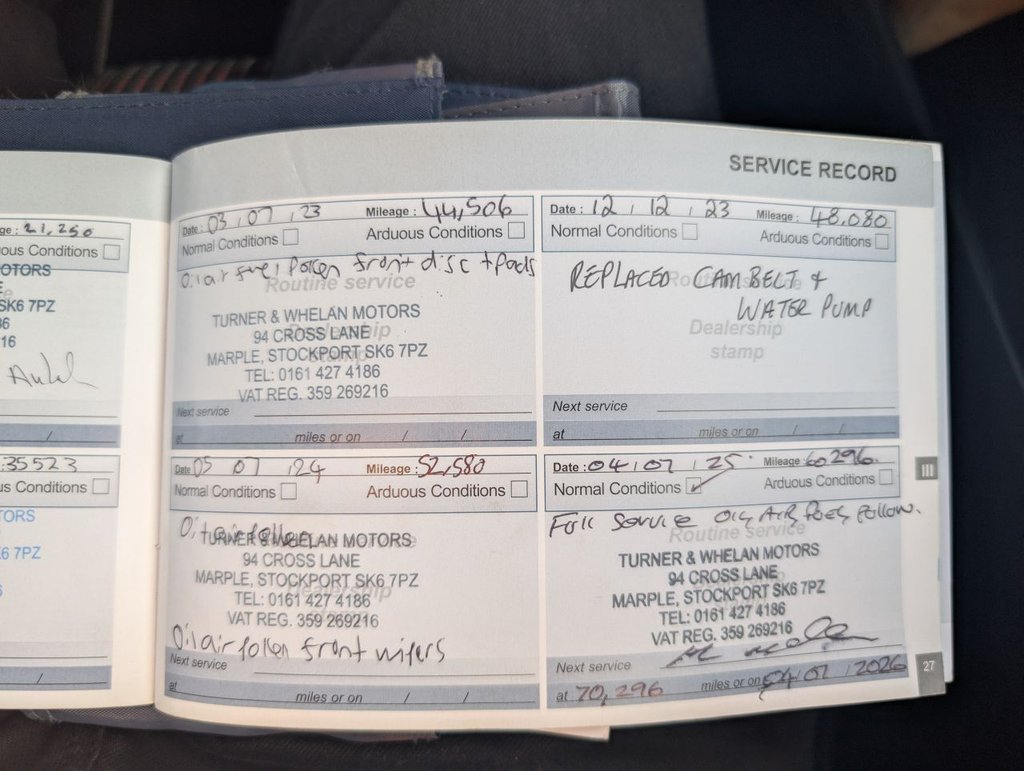 SERVICE RECORD
ge: 21,250
ous Conditions
OTORS
SK6 7PZ
16
/
:35523
us Conditions
ORS
6 7PZ
/
Date: 03 / 07 / 23 Mileage: 44,506
Normal Conditions Arduous Conditions
Oil air fuel pollen front disc + pads
Routine service
TURNER & WHELAN MOTORS
94 CROSS LANE
Dealership
MARPLE, STOCKPORT SK6 7PZ
stamp
TEL: 0161 427 4186
VAT REG. 359 269216
Next service
at miles or on / /
Date: 12 / 12 / 23 Mileage: 48,080
Normal Conditions Arduous Conditions
REPLACED CAM BELT &
Routine service
WATER PUMP
Dealership
stamp
Next service
at miles or on / /
Date 05 07 / 24 Mileage: 52,580
Normal Conditions Arduous Conditions
Oil air pollen
TURNER & WHELAN MOTORS
94 CROSS LANE
MARPLE, STOCKPORT SK6 7PZ
TEL: 0161 427 4186
VAT REG. 359 269216
Oil air pollen front wipers
Next service
at miles or on / /
Date: 04 / 07 / 25 Mileage 60,296
Normal Conditions ✓ Arduous Conditions
Full Service Oil, Air, Pollen.
Routine service
TURNER & WHELAN MOTORS
94 CROSS LANE
MARPLE, STOCKPORT SK6 7PZ
TEL: 0161 427 4186
VAT REG. 359 269216
Next service
at 70,296 miles or on 04 / 07 / 2026
III
27